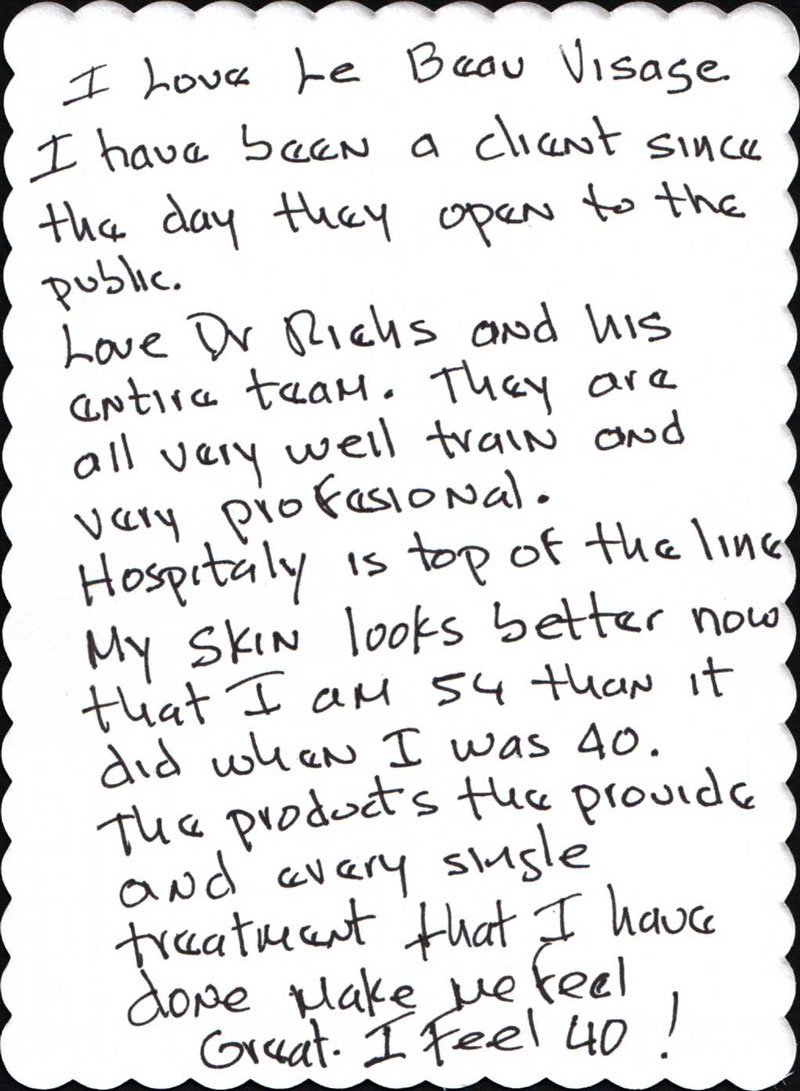 I Love Le Beau Visage.
I have been a client since
the day they open to the
public.
Love Dr Riehs and his
entire team. They are
all very well train and
very profesional.
Hospitaly is top of the line
My skin looks better now
that I am 54 than it
did when I was 40.
The products the provide
and every single
treatment that I have
done make me feel
Great. I Feel 40!